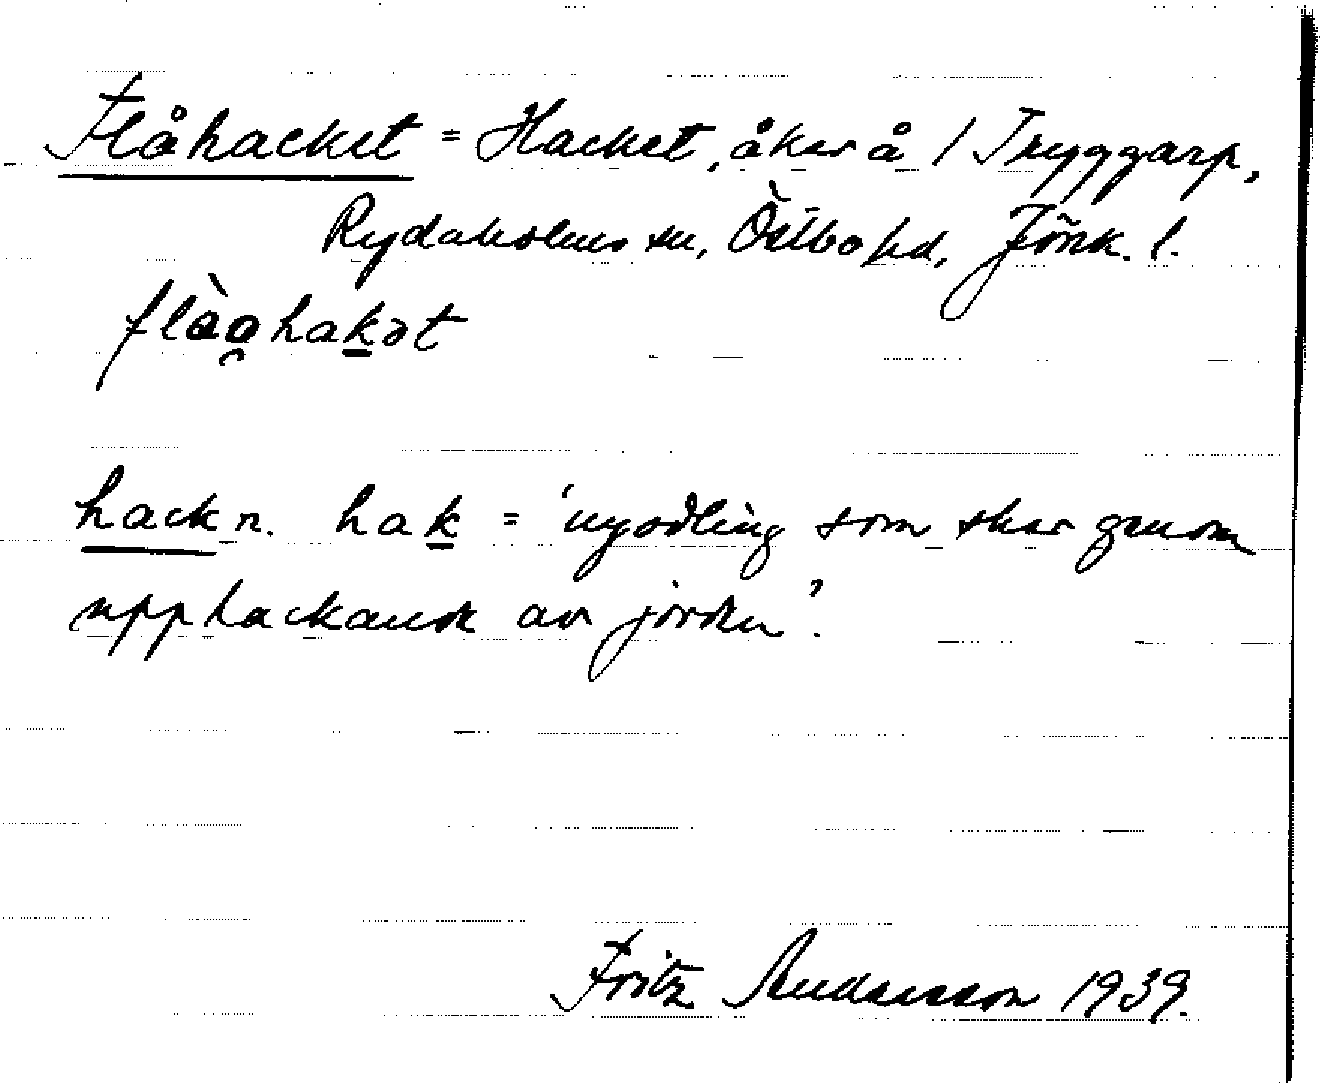 Flåhacket = Hacket, åker å 1 Tryggarp,
Rydaholms sn, Östbo hd, Jönk. l.
flàο̯hakət
hack n. hak = 'nyodling som sker genom
upphackande av jorden'.
Fritz Andersson 1939.